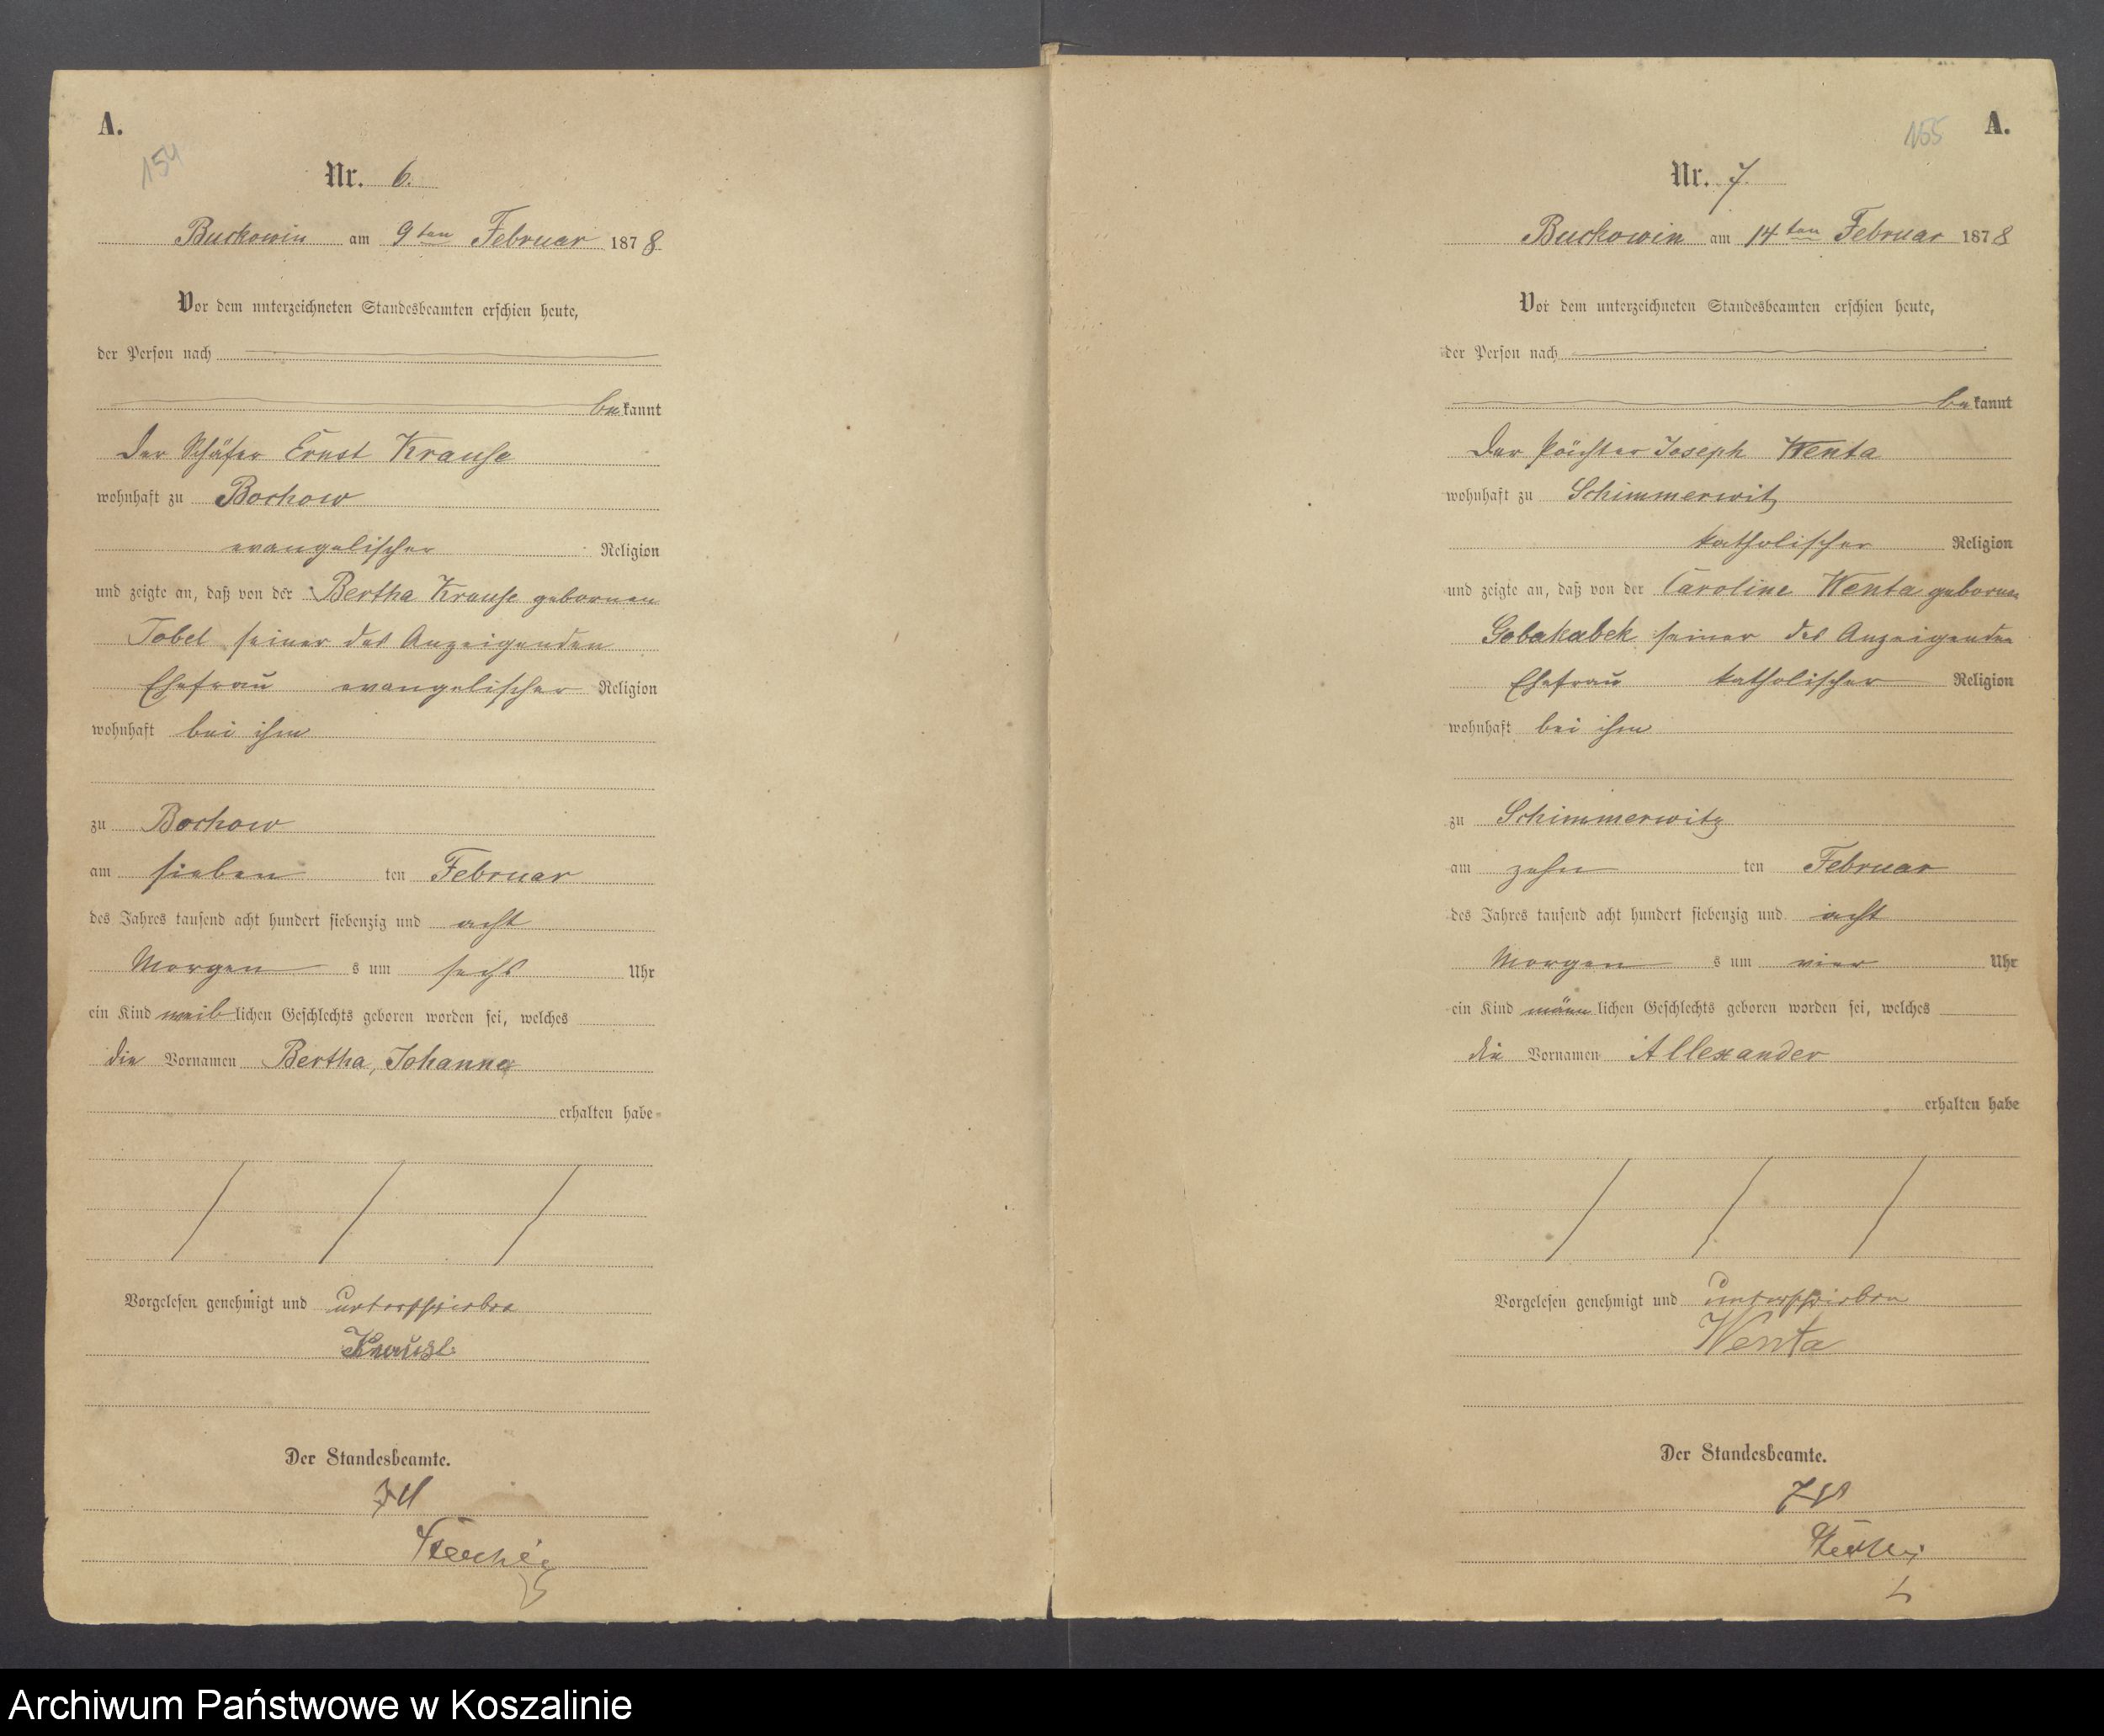 A.
154
Nr. 6.
Buckowin am 9ten Februar 1878
Vor dem unterzeichneten Standesbeamten erschien heute,
der Person nach
bekannt
Der Schäfer Ernst Krause
wohnhaft zu Bochow
evangelischer Religion
und zeigte an, daß von der Bertha Krause gebornen
Tobel seiner des Anzeigenden
Ehefrau evangelischer Religion
wohnhaft bei ihm
zu Bochow
am sieben ten Februar
des Jahres tausend acht hundert siebenzig und acht
Morgen s um sechs Uhr
ein Kind weiblichen Geschlechts geboren worden sei, welches
die Vornamen Bertha, Johanna
erhalten habe
Vorgelesen genehmigt und unterschrieben
Krause
Der Standesbeamte.
155
A.
Nr. 7.
Buckowin am 14ten Februar 1878
Vor dem unterzeichneten Standesbeamten erschien heute,
der Person nach
bekannt
Der Pächter Joseph Wenta
wohnhaft zu Schimmerwitz
katholischer Religion
und zeigte an, daß von der Caroline Wenta gebornen
seiner des Anzeigenden
Ehefrau katholischer Religion
wohnhaft bei ihm
zu Schimmerwitz
am zehn ten Februar
des Jahres tausend acht hundert siebenzig und acht
Morgen s um vier Uhr
ein Kind männlichen Geschlechts geboren worden sei, welches
die Vornamen Allexander
erhalten habe
Vorgelesen genehmigt und unterschrieben
Wenta
Der Standesbeamte.
Archiwum Państwowe w Koszalinie